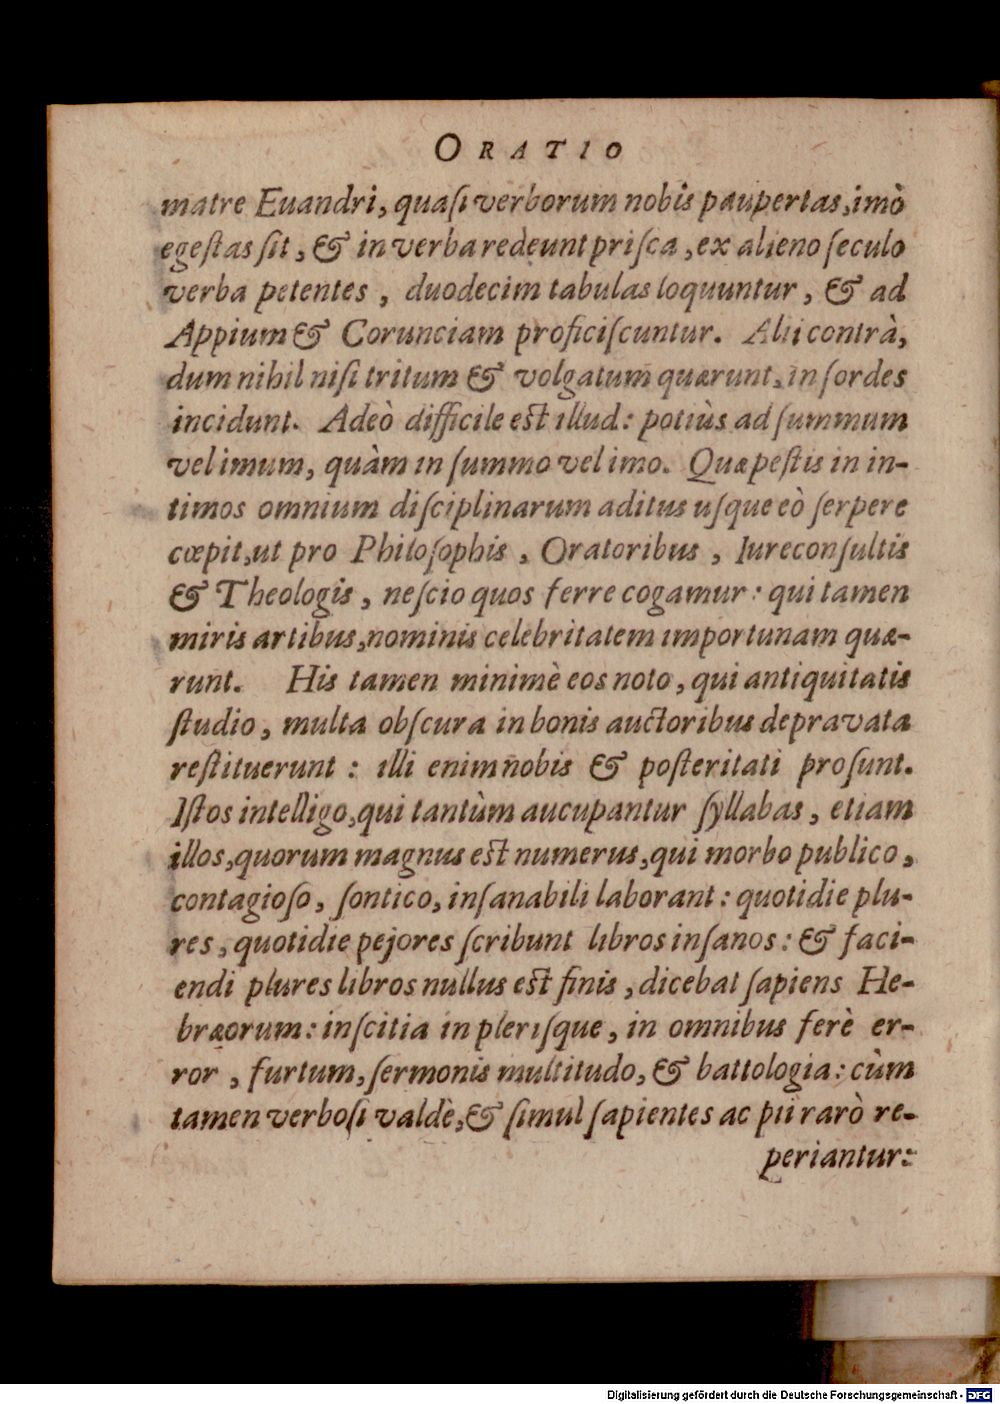 ORATIO
matre Euandri, quaſi verborum nobis paupertas, imò
egeſtas ſit, & in verba redeunt priſca, ex alieno ſeculo
verba petentes, duodecim tabulas loquuntur, & ad
Appium & Corunciam proficiſcuntur. Alii contrà,
dum nihil niſi tritum & volgatum quærunt, in ſordes
incidunt. Adeò difficile eſt illud: potiùs ad ſummum
vel imum, quàm in ſummo vel imo. Quæ peſtis in in-
timos omnium diſciplinarum aditus uſque eò ſerpere
cœpit, ut pro Philoſophis, Oratoribus, Iureconſultis
& Theologis, neſcio quos ferre cogamur: qui tamen
miris artibus, nominis celebritatem importunam quæ-
runt. His tamen minimè eos noto, qui antiquitatis
ſtudio, multa obſcura in bonis auctoribus depravata
reſtituerunt: illi enim nobis & poſteritati proſunt.
Iſtos intelligo, qui tantùm aucupantur ſyllabas, etiam
illos, quorum magnus eſt numerus, qui morbo publico,
contagioſo, ſontico, inſanabili laborant: quotidie plu-
res, quotidie pejores ſcribunt libros inſanos: & faci-
endi plures libros nullus eſt finis, dicebat ſapiens He-
bræorum: inſcitia in pleriſque, in omnibus ferè er-
ror, furtum, ſermonis multitudo, & battologia: cùm
tamen verboſi valdè, & ſimul ſapientes ac pii rarò re-
periantur:
Digitalisierung gefördert durch die Deutsche Forschungsgemeinschaft - DFG